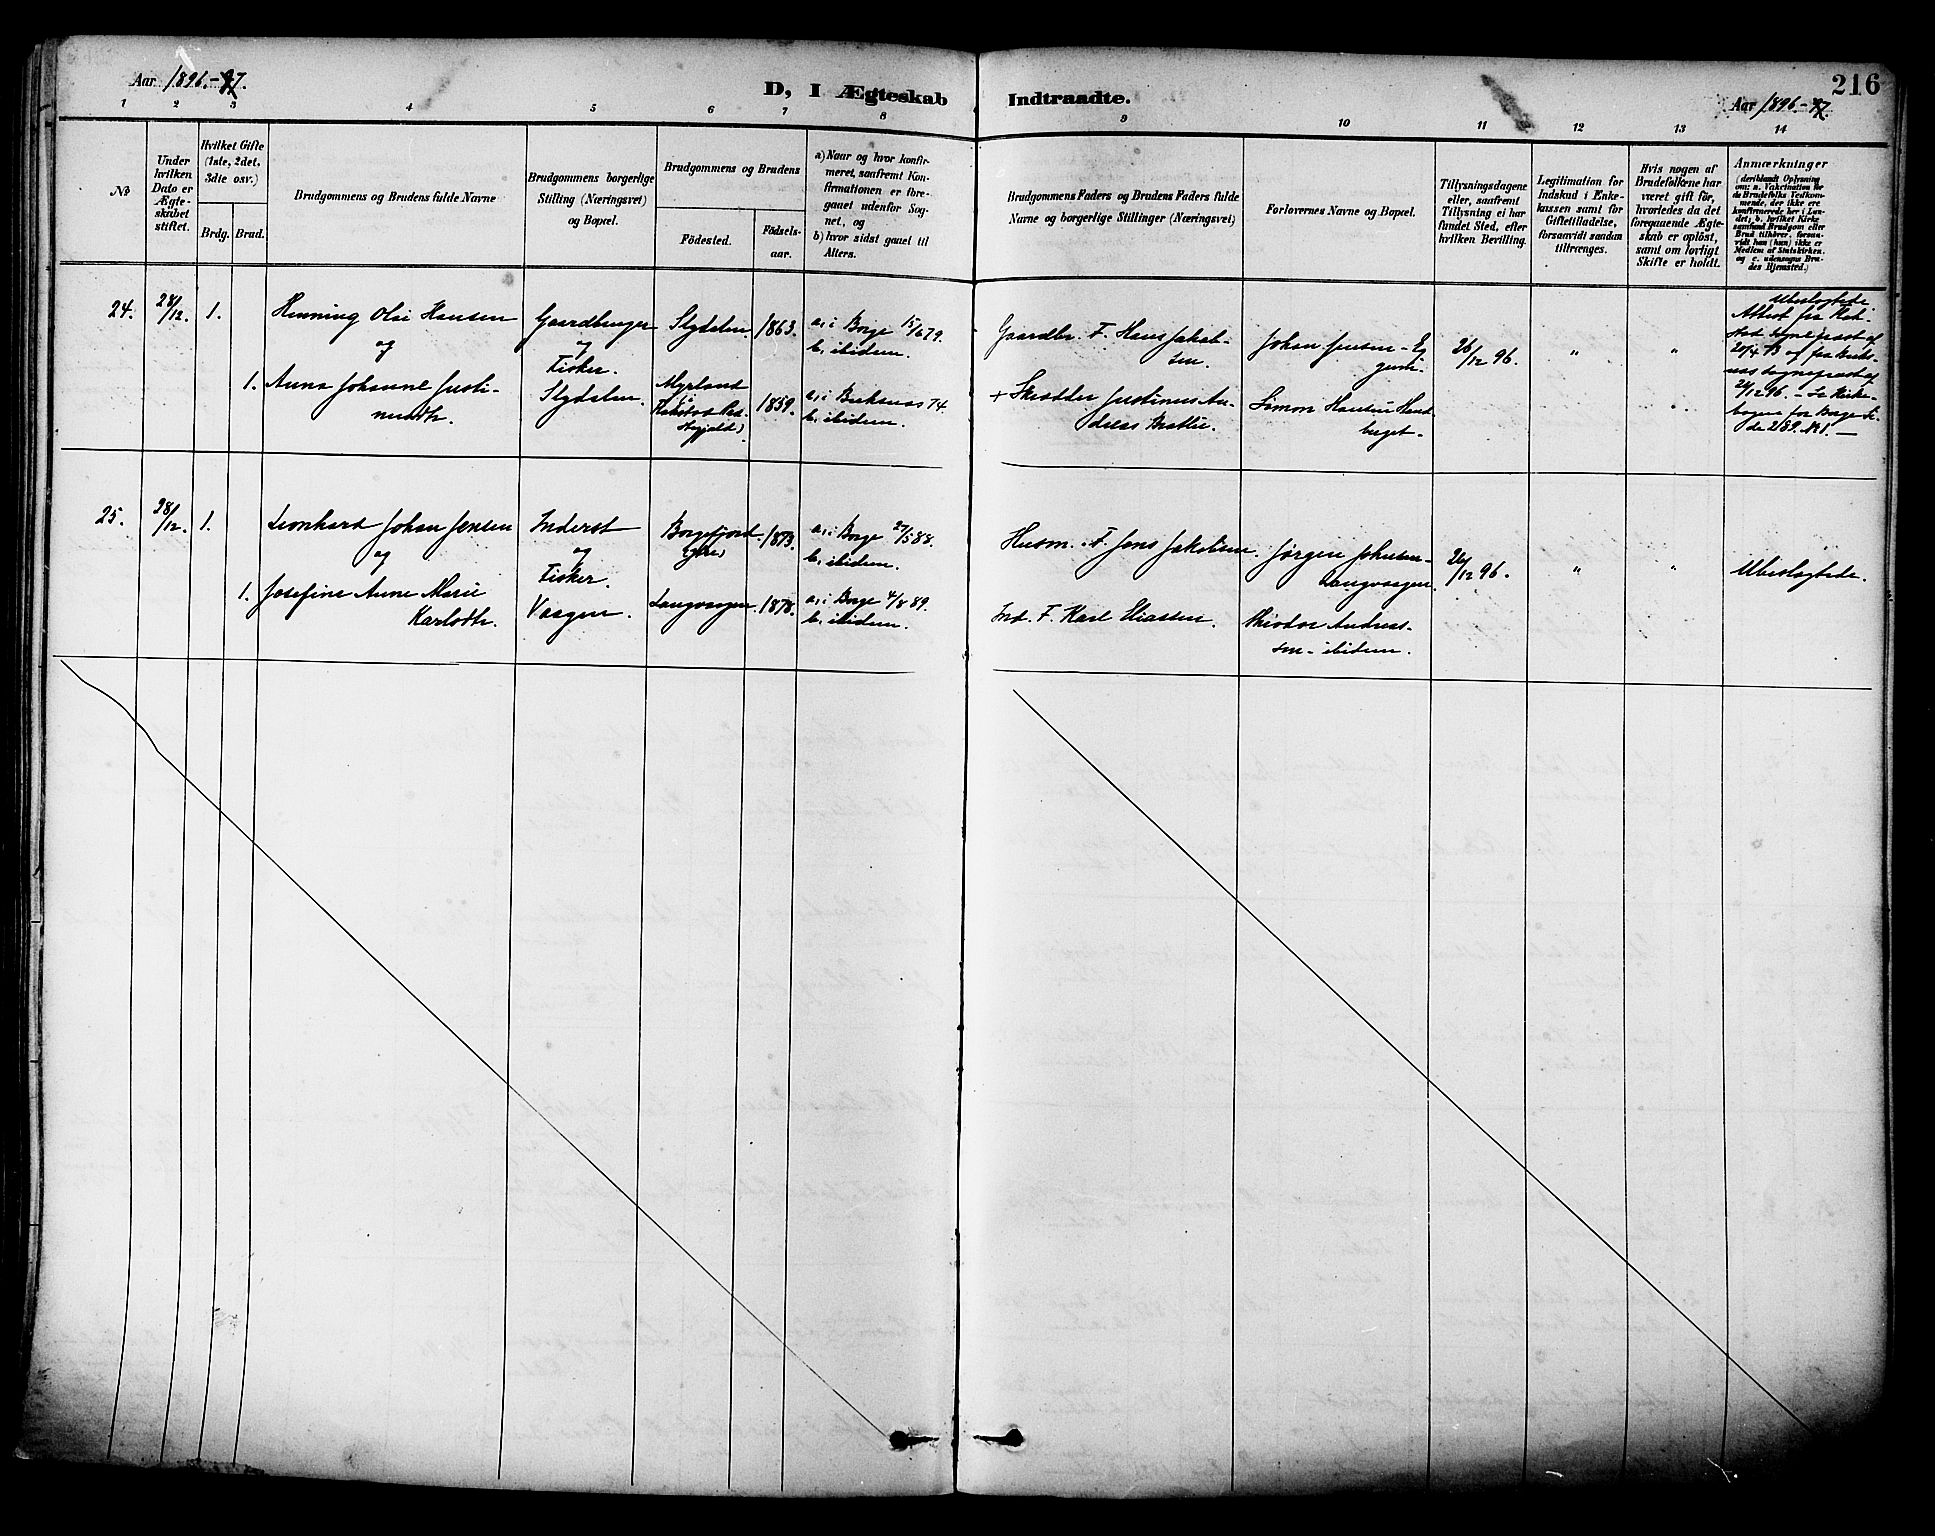 Aar 1896.-97.
D, I Ægteskab Indtraadte.
216
Aar 1896.-97.
1 2 3 4 5 6 7 8 9 10 11 12 13 14
No
Under hvilken Dato er Ægteskabet stiftet.
Hvilket Gifte (1ste, 2det, 3die osv.)
Brdg. Brud.
Brudgommens og Brudens fulde Navne
Brudgommens borgerlige Stilling (Næringsvei) og Bopæl.
Brudgommens og Brudens
Födested.
Födselsaar.
a) Naar og hvor konfirmeret, saafremt Konfirmationen er foregaaet udenfor Sognet, og
b) hvor sidst gaaet til Alters.
Brudgommens Faders og Brudens Faders fulde Navne og borgerlige Stillinger (Næringsvei)
Forlovernes Navne og Bopæl.
Tillysningsdagene eller, saafremt Tillysning ei har fundet Sted, efter hvilken Bevilling.
Legitimation for Indskud i Enkekassen samt for Giftetilladelse, forsaavidt saadan tiltrænges.
Hvis nogen af Brudefolkene har været gift för, hvorledes da det foregaaende Ægteskab er oplöst, samt om lovligt Skifte er holdt.
Anmærkninger
(deriblandt Oplysning om: a. Vakcination for de Brudefolks Vedkommende, der ikke ere konfirmerede her i Landet; b. hvilket Kirkesamfund Brudgom eller Brud tilhörer, forsaavidt han (hun) ikke er Medlem af Statskirken, og c. udensogns Brudes Hjemsted.)
24. 28/12. 1.
Henning Olai Hansen
og
1. Anna Johanne Justi-
nusdtr.
Gaardbruger
og
Fisker.
Slydalen.
Slydalen. 1863.
Myrland
1859.
a, i Borge 15/6 79.
b, ibidem.
a, i Buksnæs 74.
b, ibidem.
Gaardbr. F. Hans Jakob-
sen.
+ Skrædder Justinus An-
dreas
Johan Jensen -
Simon Hansen
26/12 96.
"
"
Ubeslægtede
Attest fra
sogneprest af
24/12 96. - Se Kirke-
bogen for Borge Si-
de 289. No 1. -
25. 28/12. 1.
Leonhard Johan Jensen
og
1. Josefine Anne Marie
Karlsdtr.
Inderst
og
Fisker.
Vaagen.
Borgefjord 1873.
Langvaagen. 1878.
a, i Borge 27/5 88.
b, ibidem.
a, i Borge 4/8 89.
b, ibidem.
Husm. F. Jens Jakobsen.
Ind. F. Karl Eliassen.
Jørgen Johnsen-
Langvaagen.
Theodor Andreas-
sen - ibidem.
26/12 96.
"
"
Ubeslægtede.